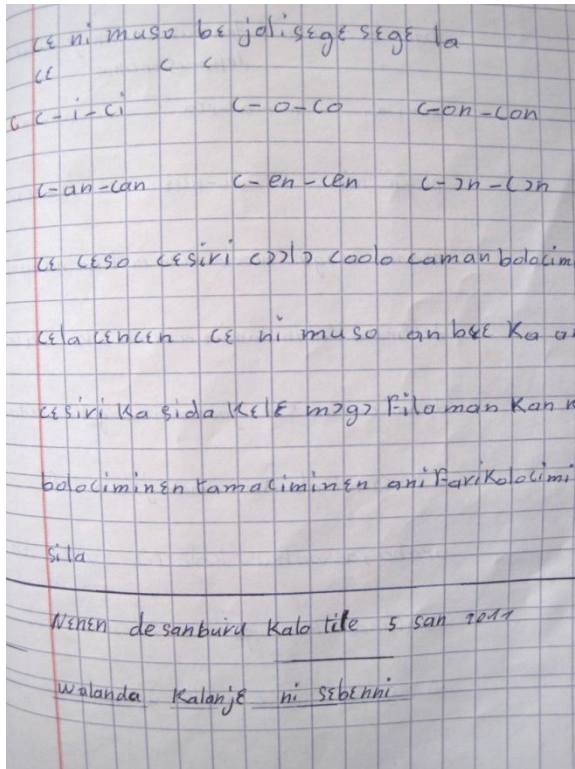 cɛ ni muso bɛ joli sɛgɛsɛgɛ la
cɛ c c
c c-i-ci c-o-co c-on-con
c-an-can c-en-cen c-ɔn-cɔn
cɛ cɛso cɛsiri cɔɔlɔ coolo caman bolocim
cɛla cɛncɛn cɛ ni muso an bɛɛ ka a
cɛsiri ka sida kɛlɛ mɔgɔ Fila man kan
bolociminɛn tamaciminɛn ani Farikolocimi
sila
Nɛnɛn de sanburu Kalo tile 5 san 2011
walanda Kalanjɛ ni sɛbɛnni